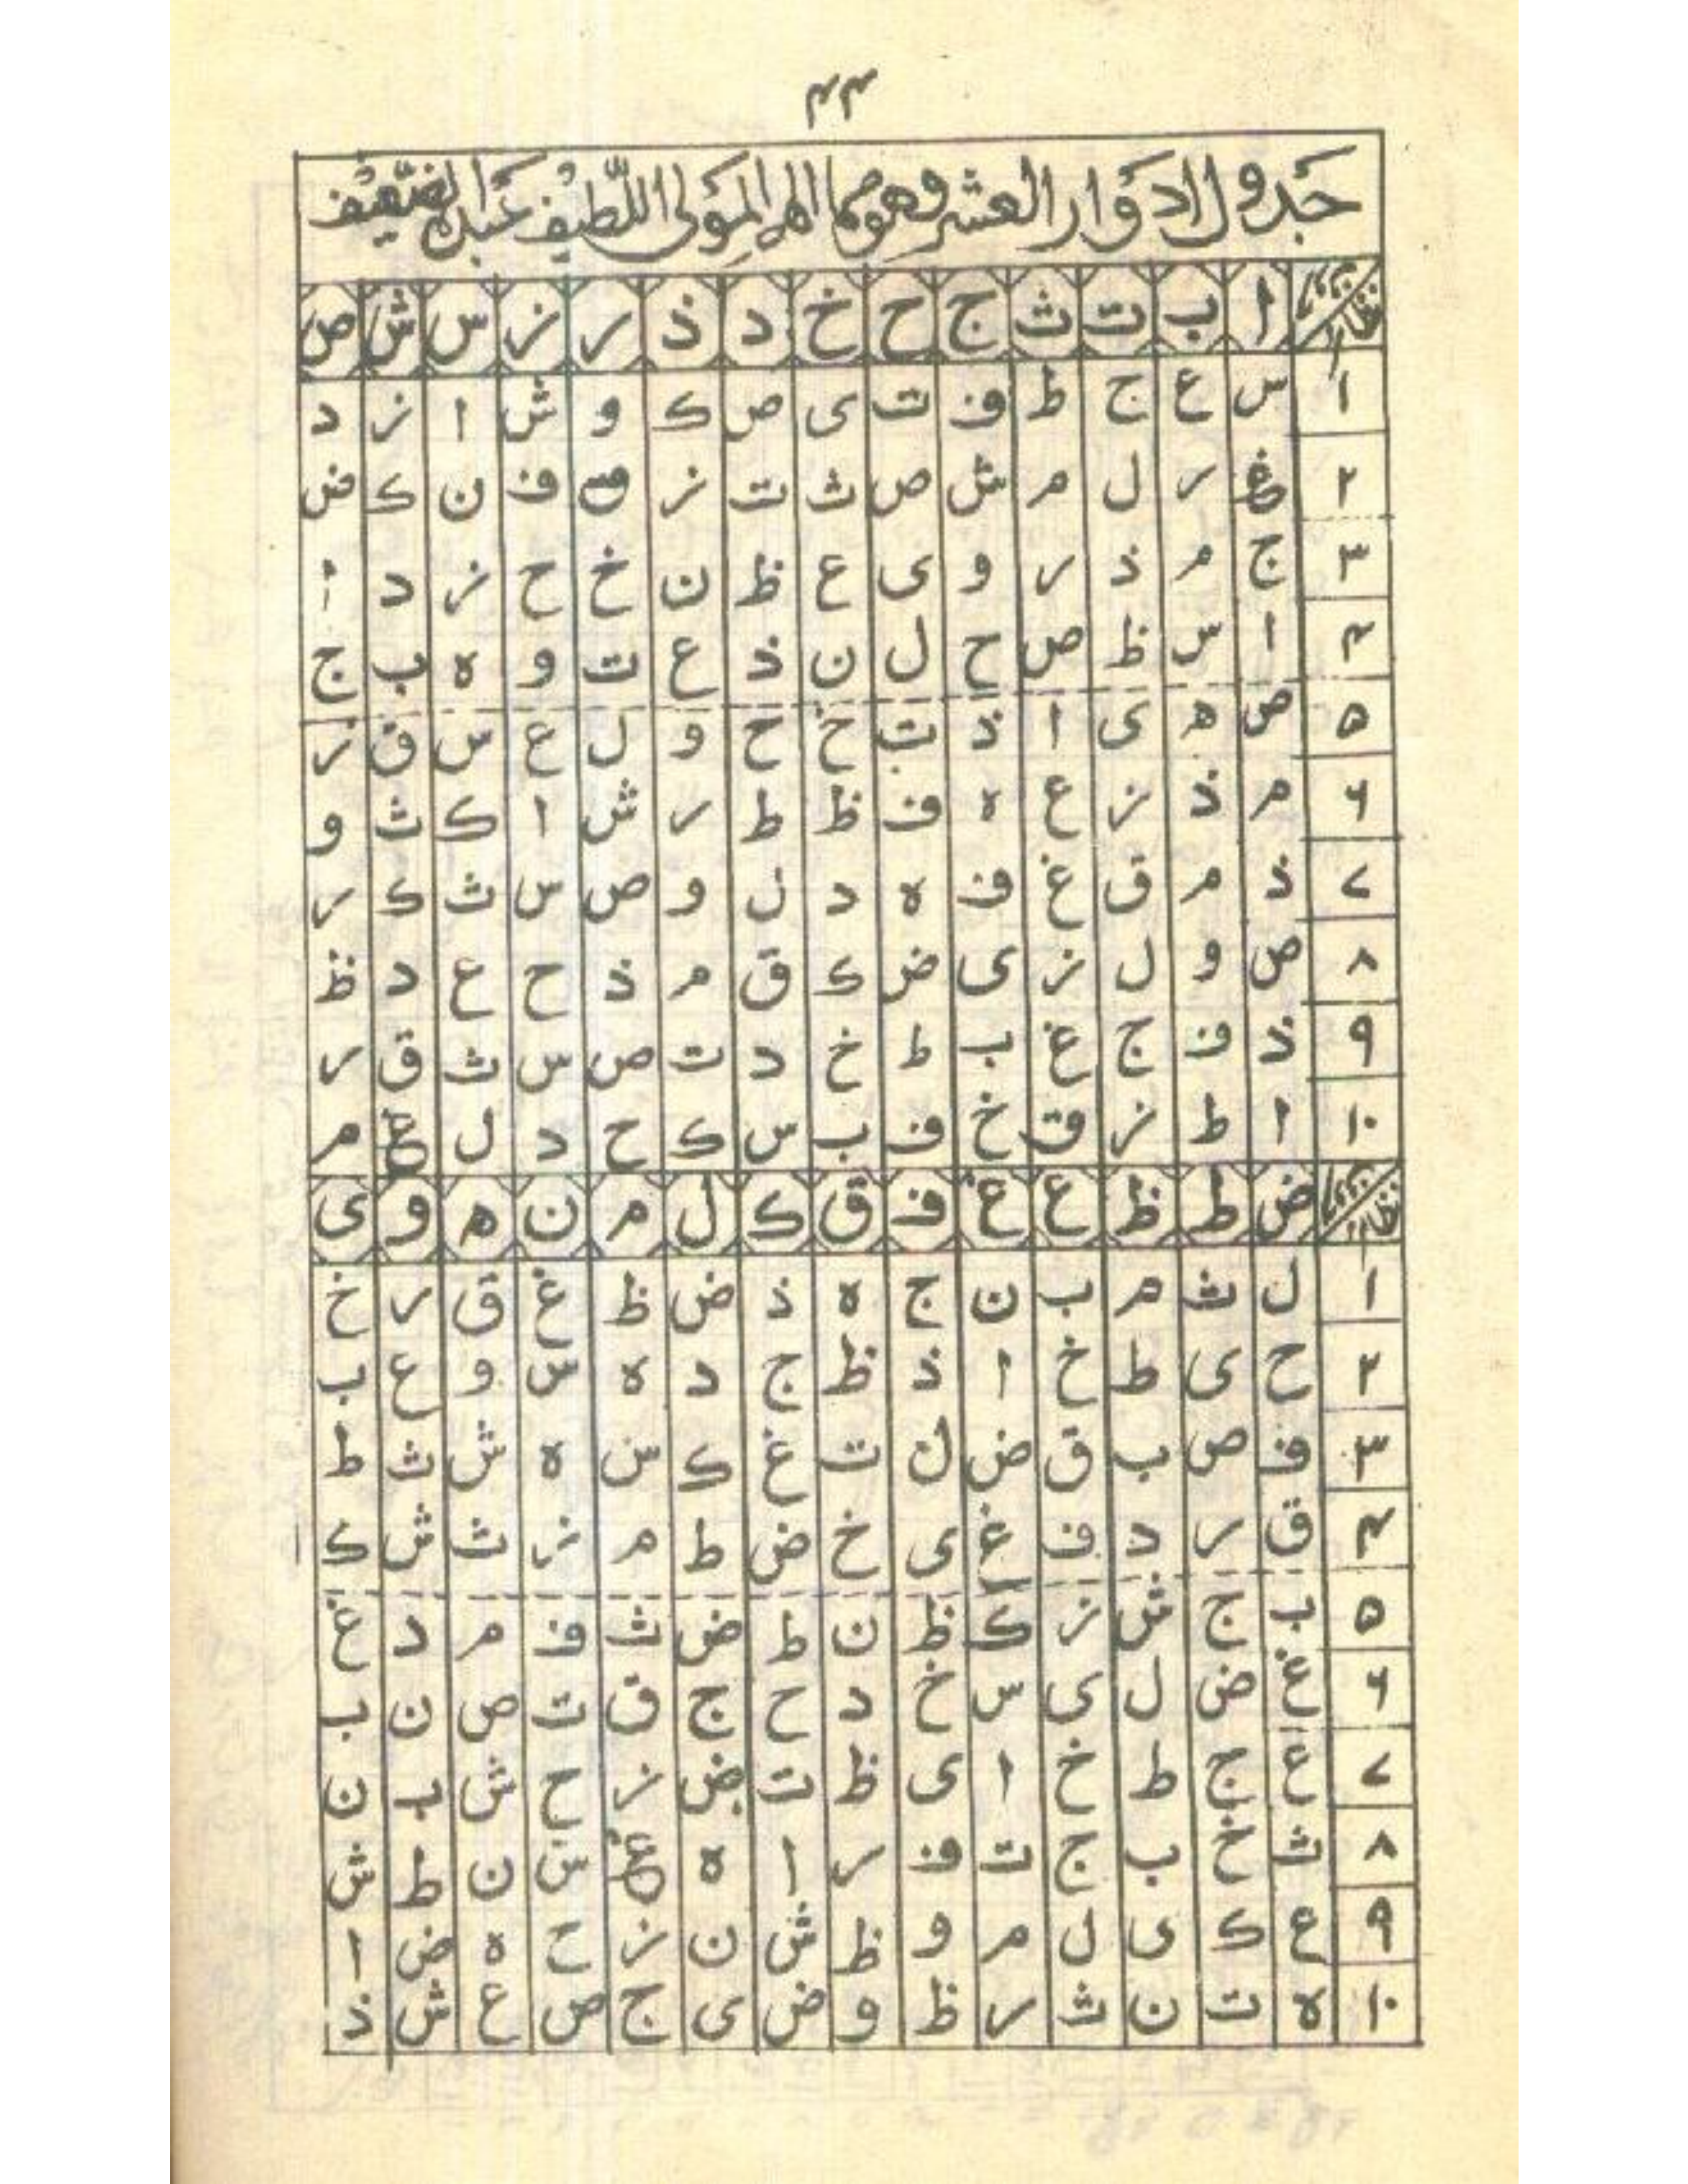 ۴۴
جدول الادوار العشر وهو مما الهم المولى اللطيف عبده الضعيف
ا ب ت ث ج ح خ د ذ ر ز س ش ص
۱ س ع ج ط ف ت ی ص ک و ش ا ز د
۲ غ ر ل م ش ص ث ت ز ق ف ن ک ض
۳ ج م ذ ر و ی ع ظ ن خ ح ز د ا
۴ ا س ظ ص ح ل ن ذ ع ت و ه ب ج
۵ ص ه ی ا ذ ت خ ح و ل ع س ق ز
۶ م ذ ز ع ه ف ظ ط ر ش ا ک ث و
۷ ذ م ق غ ف ه د ل و ص س ث ک ر
۸ ص و ل ز ی ض ک ق م ذ ح ع د ظ
۹ ذ ف ج غ ب ط خ د ت ص س ث ق ر
۱۰ ا ط ز ق خ ف ب س ک ح د ل غ م
ض ط ظ ع غ ف ق ک ل م ن ه و ی
۱ ل ث م ب ن ج ه ذ ض ظ غ ق ر خ
۲ ح ی ط خ ا ذ ظ ج د ه س و ع ب
۳ ف ص ب ق ض ل ت غ ک س ه ش ث ط
۴ ق ر د ف غ ی خ ض ط م ز ث ش ک
۵ ب ج ش ز ک ظ ن ط ض ث ف م د غ
۶ غ ض ل ی س خ د ح ج ق ت ص ن ب
۷ ع ج ط خ ا ی ظ ت ض ز ح ش ب ن
۸ ث خ ب ج ت ف ر ا ه غ س ن ط ش
۹ ع ک ی ل م و ظ ش ن ز ح ه ض ا
۱۰ ه ت ن ث ر ظ و ض ی ج ص ع ش ذ